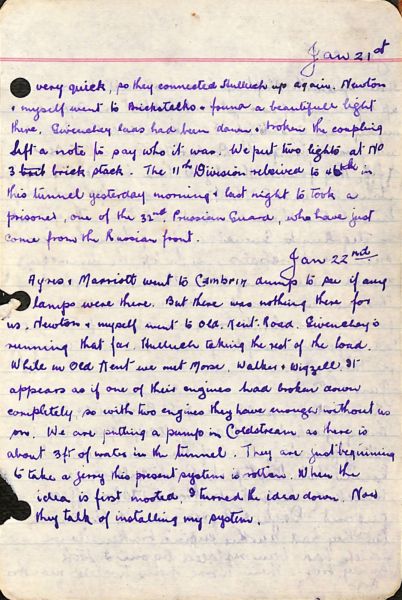 Jan 21st
very quick, so they connected Hulluch up again. Newton
+ myself went to Brickstalks + found a beautifull light
there. Givenchey lads had been down + broken the coupling
left a note to say who it was. We put two lights at No
3 brick stack. The 11th Division relieved to 46th in
this tunnel yesterday morning + last night to took a
prisoner, one of the 32nd Prussian Guard, who have just
come from the Russian front.
Jan 22nd.
Ayres + Marriott went to Cambrin dump to see if any
lamps were there. But there was nothing there for
us. Newton + myself went to Old. Kent. Road. Givenchey's
running that far. Hulluch taking the rest of the load.
While in Old Kent we met Morse, Walker + Wigzell. It
appears as if one of their engines had broken down
completely, so with two engines they have enough without us
on. We are putting a pump in Coldstream as here is
about 3ft of water in the tunnel. They are just beginning
to take a jerry this present system is rotten. When the
idea is first mooted, I turned the idea down. Now
they talk of installing my system.